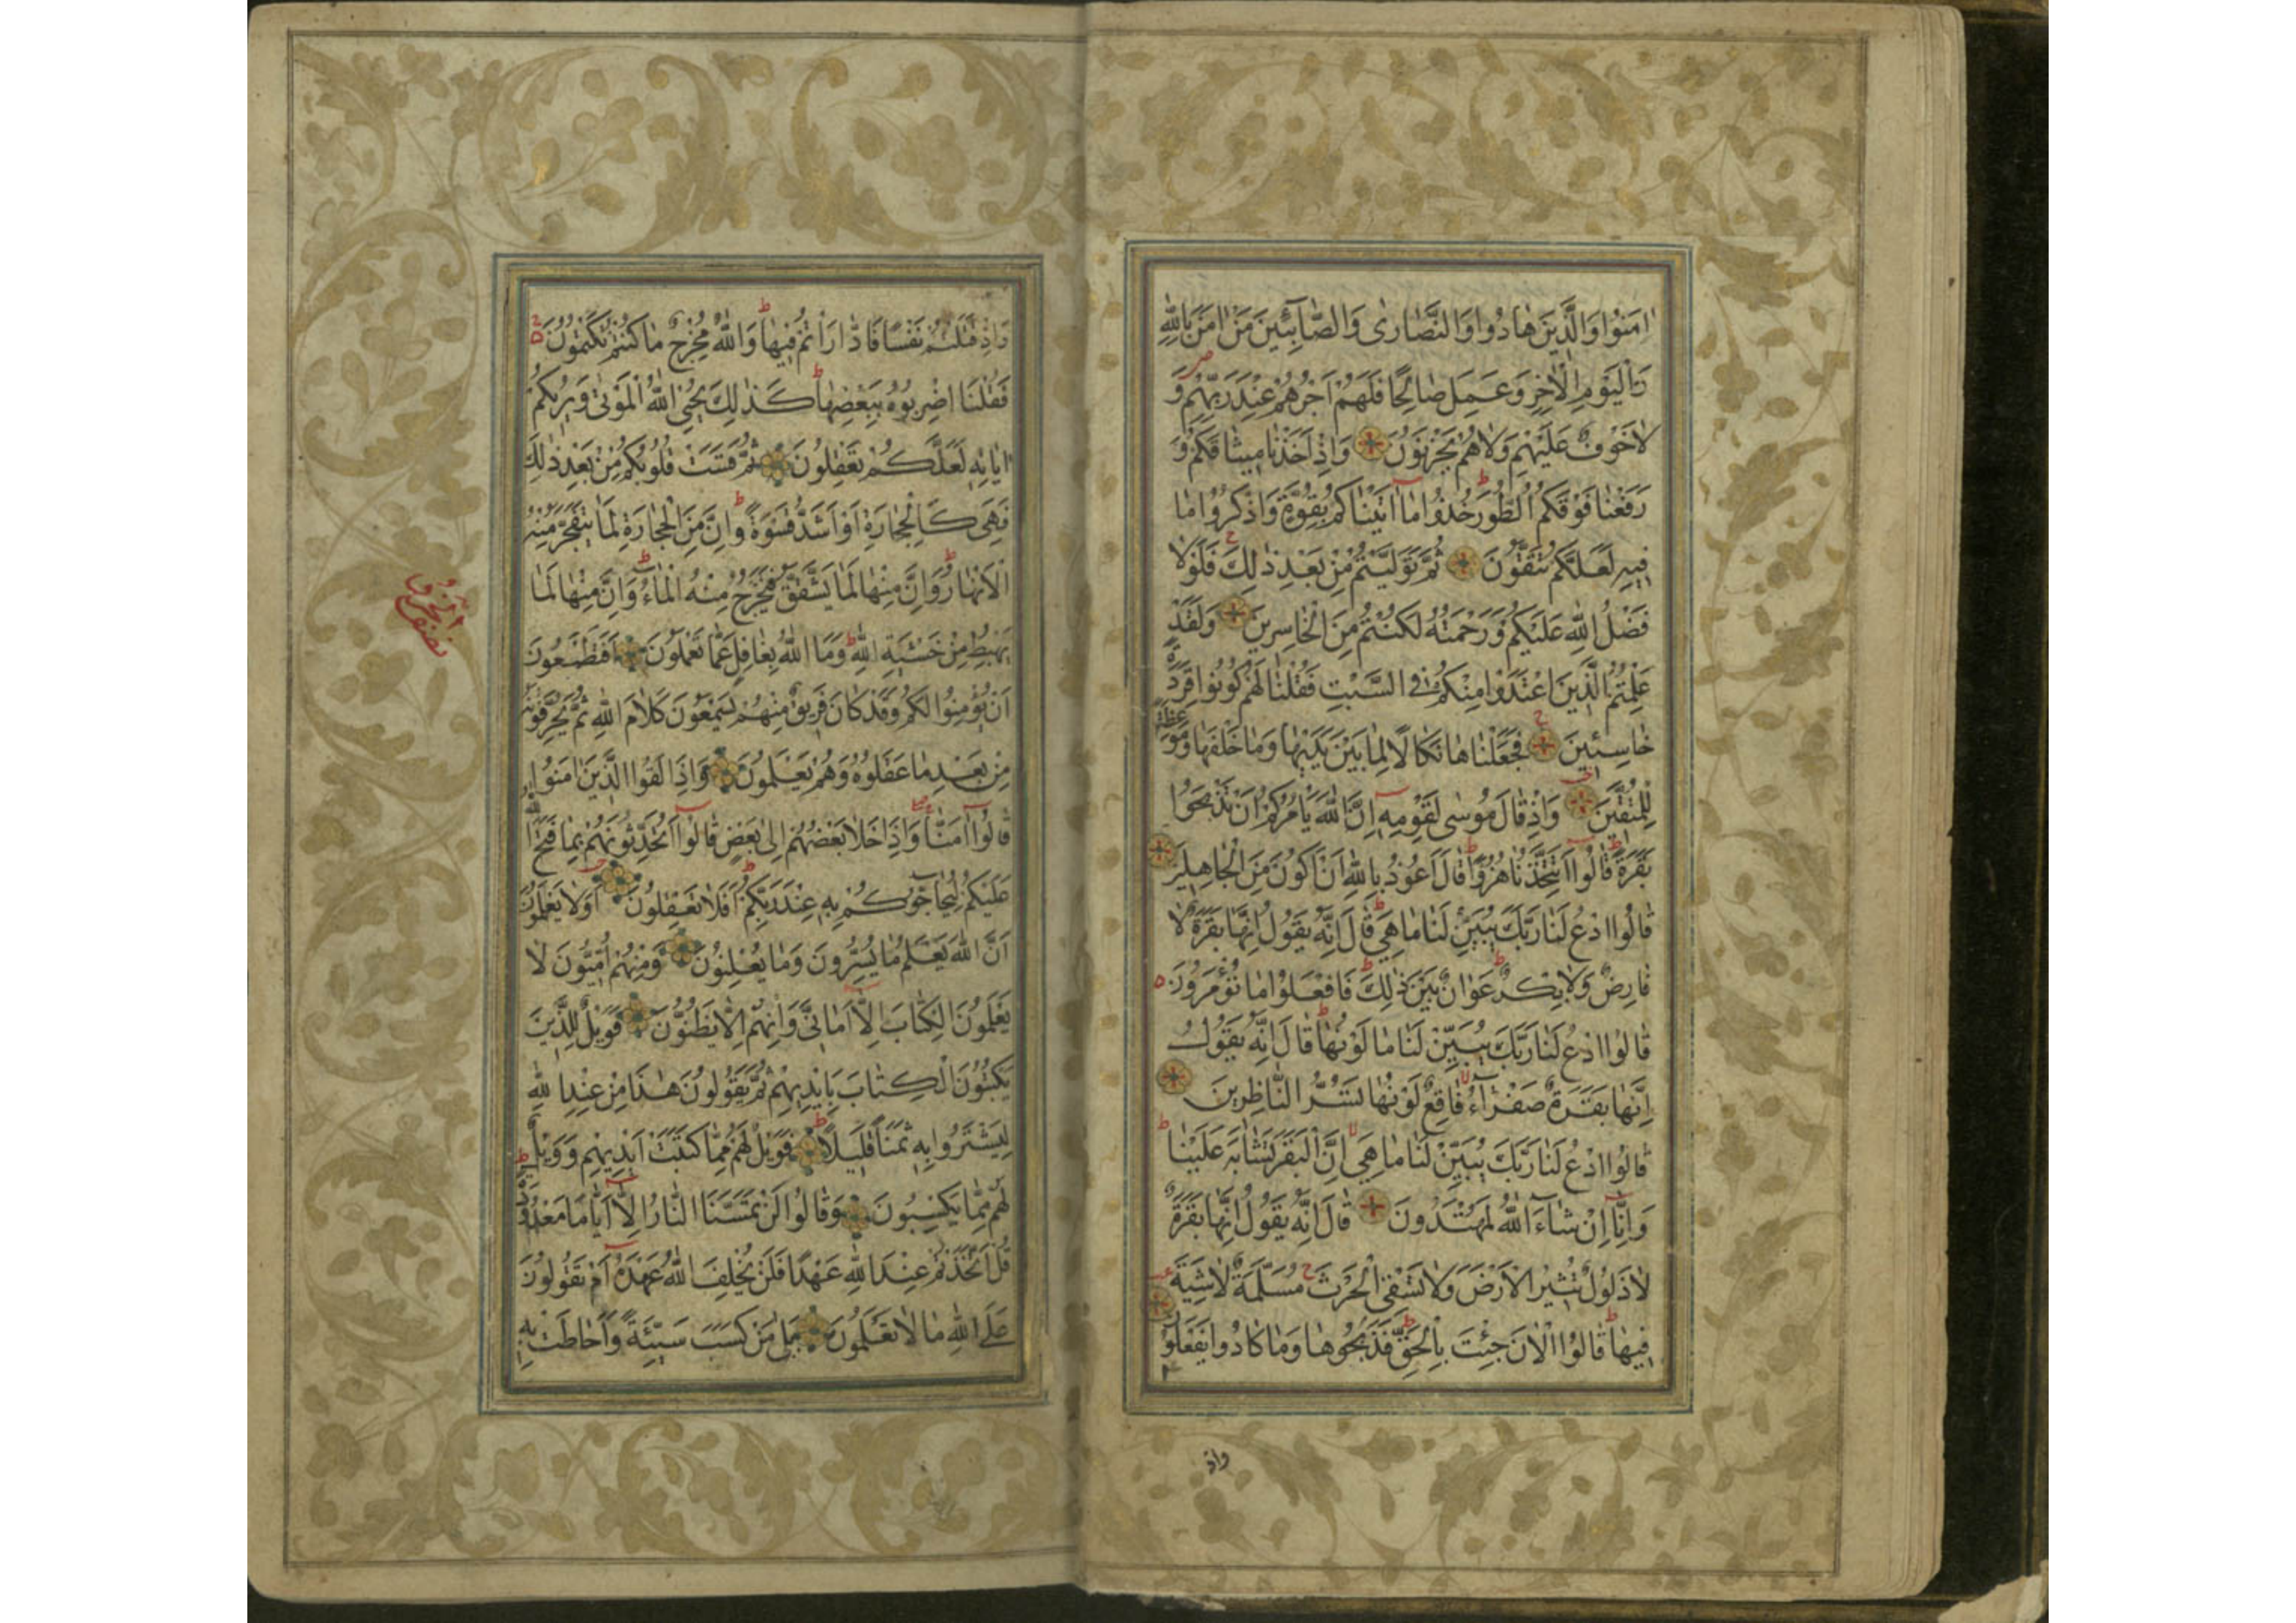 اٰمَنُوا وَالَّذِينَ هَادُوا وَالنَّصَارٰى وَالصَّابِئِينَ مَنْ اٰمَنَ بِاللّٰهِ
وَالْيَوْمِ الْاٰخِرِ وَعَمِلَ صَالِحًا فَلَهُمْ اَجْرُهُمْ عِنْدَ رَبِّهِمْ وَ
لَا خَوْفٌ عَلَيْهِمْ وَلَا هُمْ يَحْزَنُونَ وَاِذْ اَخَذْنَا مِيثَاقَكُمْ وَ
رَفَعْنَا فَوْقَكُمُ الطُّورَ خُذُوا مَا اٰتَيْنَاكُمْ بِقُوَّةٍ وَاذْكُرُوا مَا
فِيهِ لَعَلَّكُمْ تَتَّقُونَ ثُمَّ تَوَلَّيْتُمْ مِنْ بَعْدِ ذٰلِكَ فَلَوْلَا
فَضْلُ اللّٰهِ عَلَيْكُمْ وَرَحْمَتُهُ لَكُنْتُمْ مِنَ الْخَاسِرِينَ وَلَقَدْ
عَلِمْتُمُ الَّذِينَ اعْتَدَوْا مِنْكُمْ فِي السَّبْتِ فَقُلْنَا لَهُمْ كُونُوا قِرَدَةً
خَاسِئِينَ فَجَعَلْنَاهَا نَكَالًا لِمَا بَيْنَ يَدَيْهَا وَمَا خَلْفَهَا وَمَوْعِظَةً
لِلْمُتَّقِينَ وَاِذْ قَالَ مُوسٰى لِقَوْمِهِ اِنَّ اللّٰهَ يَاْمُرُكُمْ اَنْ تَذْبَحُوا
بَقَرَةً قَالُوا اَتَتَّخِذُنَا هُزُوًا قَالَ اَعُوذُ بِاللّٰهِ اَنْ اَكُونَ مِنَ الْجَاهِلِينَ
قَالُوا ادْعُ لَنَا رَبَّكَ يُبَيِّنْ لَنَا مَا هِيَ قَالَ اِنَّهُ يَقُولُ اِنَّهَا بَقَرَةٌ لَا
فَارِضٌ وَلَا بِكْرٌ عَوَانٌ بَيْنَ ذٰلِكَ فَافْعَلُوا مَا تُؤْمَرُونَ
قَالُوا ادْعُ لَنَا رَبَّكَ يُبَيِّنْ لَنَا مَا لَوْنُهَا قَالَ اِنَّهُ يَقُولُ
اِنَّهَا بَقَرَةٌ صَفْرَاءُ فَاقِعٌ لَوْنُهَا تَسُرُّ النَّاظِرِينَ
قَالُوا ادْعُ لَنَا رَبَّكَ يُبَيِّنْ لَنَا مَا هِيَ اِنَّ الْبَقَرَ تَشَابَهَ عَلَيْنَا
وَاِنَّا اِنْ شَاءَ اللّٰهُ لَمُهْتَدُونَ قَالَ اِنَّهُ يَقُولُ اِنَّهَا بَقَرَةٌ
لَا ذَلُولٌ تُثِيرُ الْاَرْضَ وَلَا تَسْقِي الْحَرْثَ مُسَلَّمَةٌ لَا شِيَةَ
فِيهَا قَالُوا الْاٰنَ جِئْتَ بِالْحَقِّ فَذَبَحُوهَا وَمَا كَادُوا يَفْعَلُونَ
واذ
وَاِذْ قَتَلْتُمْ نَفْسًا فَادّٰارَاْتُمْ فِيهَا وَاللّٰهُ مُخْرِجٌ مَا كُنْتُمْ تَكْتُمُونَ
فَقُلْنَا اضْرِبُوهُ بِبَعْضِهَا كَذٰلِكَ يُحْيِي اللّٰهُ الْمَوْتٰى وَيُرِيكُمْ
اٰيَاتِهِ لَعَلَّكُمْ تَعْقِلُونَ ثُمَّ قَسَتْ قُلُوبُكُمْ مِنْ بَعْدِ ذٰلِكَ
فَهِيَ كَالْحِجَارَةِ اَوْ اَشَدُّ قَسْوَةً وَاِنَّ مِنَ الْحِجَارَةِ لَمَا يَتَفَجَّرُ مِنْهُ
الْاَنْهَارُ وَاِنَّ مِنْهَا لَمَا يَشَّقَّقُ فَيَخْرُجُ مِنْهُ الْمَاءُ وَاِنَّ مِنْهَا لَمَا
يَهْبِطُ مِنْ خَشْيَةِ اللّٰهِ وَمَا اللّٰهُ بِغَافِلٍ عَمَّا تَعْمَلُونَ اَفَتَطْمَعُونَ
اَنْ يُؤْمِنُوا لَكُمْ وَقَدْ كَانَ فَرِيقٌ مِنْهُمْ يَسْمَعُونَ كَلَامَ اللّٰهِ ثُمَّ يُحَرِّفُونَهُ
مِنْ بَعْدِ مَا عَقَلُوهُ وَهُمْ يَعْلَمُونَ وَاِذَا لَقُوا الَّذِينَ اٰمَنُوا
قَالُوا اٰمَنَّا وَاِذَا خَلَا بَعْضُهُمْ اِلٰى بَعْضٍ قَالُوا اَتُحَدِّثُونَهُمْ بِمَا فَتَحَ اللّٰهُ
عَلَيْكُمْ لِيُحَاجُّوكُمْ بِهِ عِنْدَ رَبِّكُمْ اَفَلَا تَعْقِلُونَ اَوَلَا يَعْلَمُونَ
اَنَّ اللّٰهَ يَعْلَمُ مَا يُسِرُّونَ وَمَا يُعْلِنُونَ وَمِنْهُمْ اُمِّيُّونَ لَا
يَعْلَمُونَ الْكِتَابَ اِلَّا اَمَانِيَّ وَاِنْ هُمْ اِلَّا يَظُنُّونَ فَوَيْلٌ لِلَّذِينَ
يَكْتُبُونَ الْكِتَابَ بِاَيْدِيهِمْ ثُمَّ يَقُولُونَ هٰذَا مِنْ عِنْدِ اللّٰهِ
لِيَشْتَرُوا بِهِ ثَمَنًا قَلِيلًا فَوَيْلٌ لَهُمْ مِمَّا كَتَبَتْ اَيْدِيهِمْ وَوَيْلٌ
لَهُمْ مِمَّا يَكْسِبُونَ وَقَالُوا لَنْ تَمَسَّنَا النَّارُ اِلَّا اَيَّامًا مَعْدُودَةً
قُلْ اَتَّخَذْتُمْ عِنْدَ اللّٰهِ عَهْدًا فَلَنْ يُخْلِفَ اللّٰهُ عَهْدَهُ اَمْ تَقُولُونَ
عَلَى اللّٰهِ مَا لَا تَعْلَمُونَ بَلٰى مَنْ كَسَبَ سَيِّئَةً وَاَحَاطَتْ بِهِ